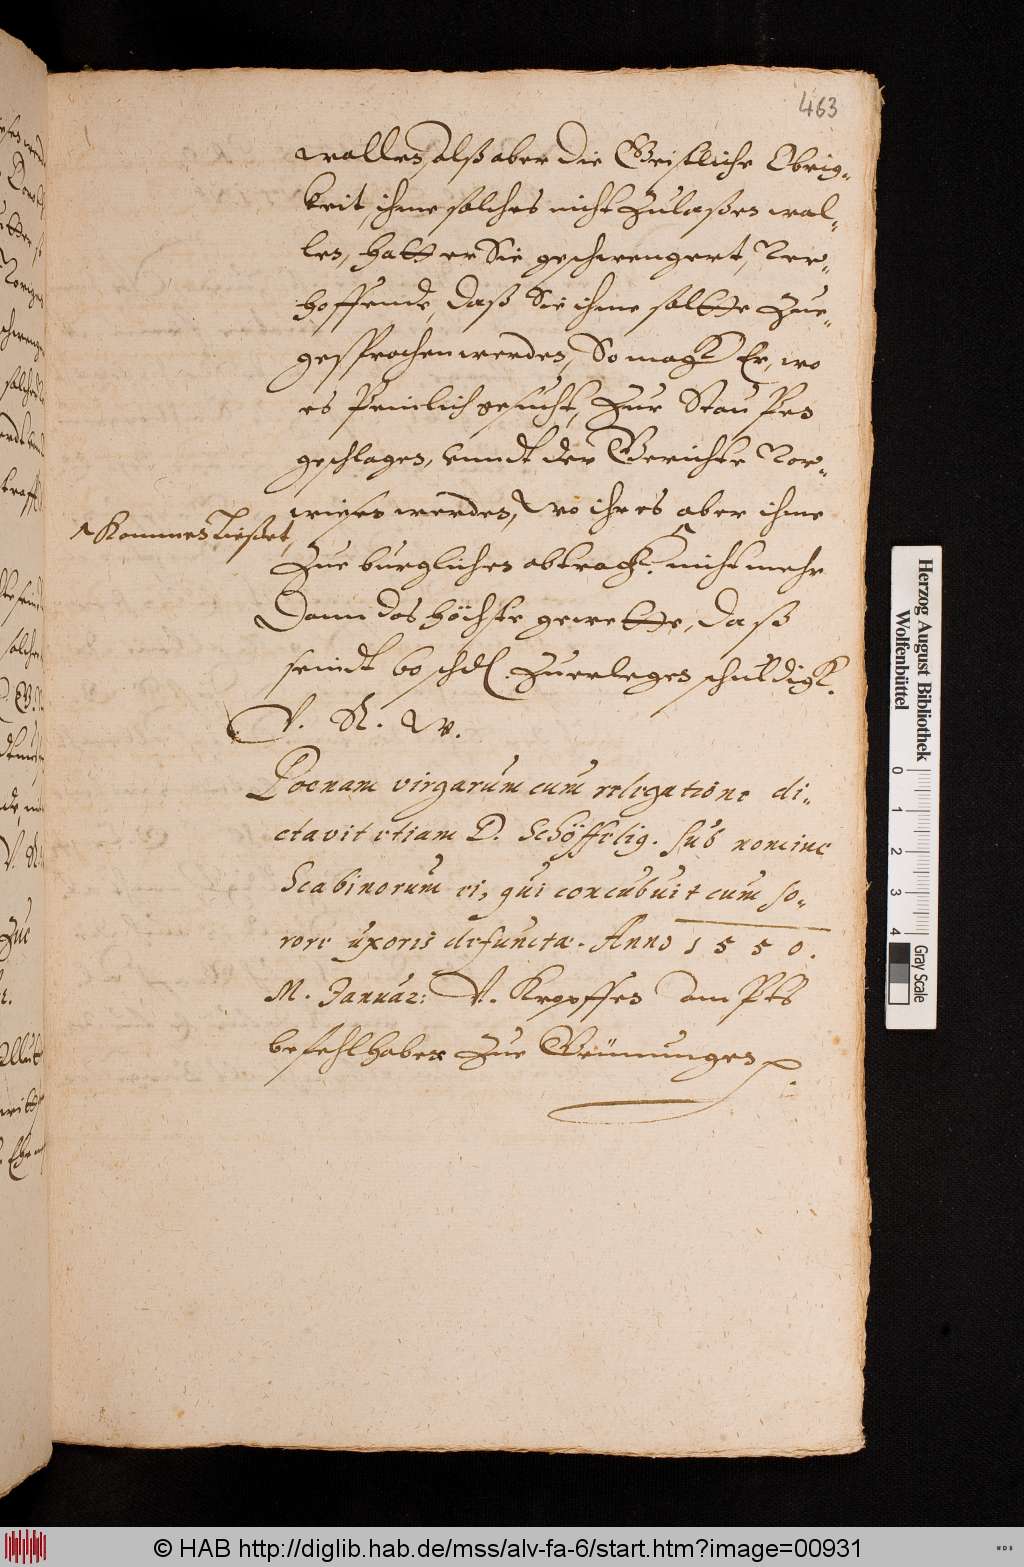 463
wollen, alß aber die Geistliche Obrig-
keit, ihme solches nicht Zulaßen wol-
len, hatt er Sie geschwengert, Ver-
hoffende, daß Sie ihme soltte Zue-
gesprochen werden, So magk Er, wo
es Peinlich gesucht, Zur Staupen
geschlagen, vnndt der Gerichte Vor-
wiesen werden, wo ihr es aber ihme
^ Kommen Ließet,
Zue burglichen abtragk. ^ nicht mehr
Dann das höchste gewette, daß
seindt 60 schl. Zuerlegen schuldigk.
V. R. W.
Poenam virgarum cum relegatione di-
ctavit etiam D. Schöfferlig. sub nomine
Scabinorum ei, qui concubuit cum so-
rore uxoris defunctæ. Anno 1550.
M. Januar: V. Kropffen Ampts
befehlhaber Zue
Herzog August Bibliothek
Wolfenbüttel
0 1 2 3 4
Gray Scale
© HAB http://diglib.hab.de/mss/alv-fa-6/start.htm?image=00931